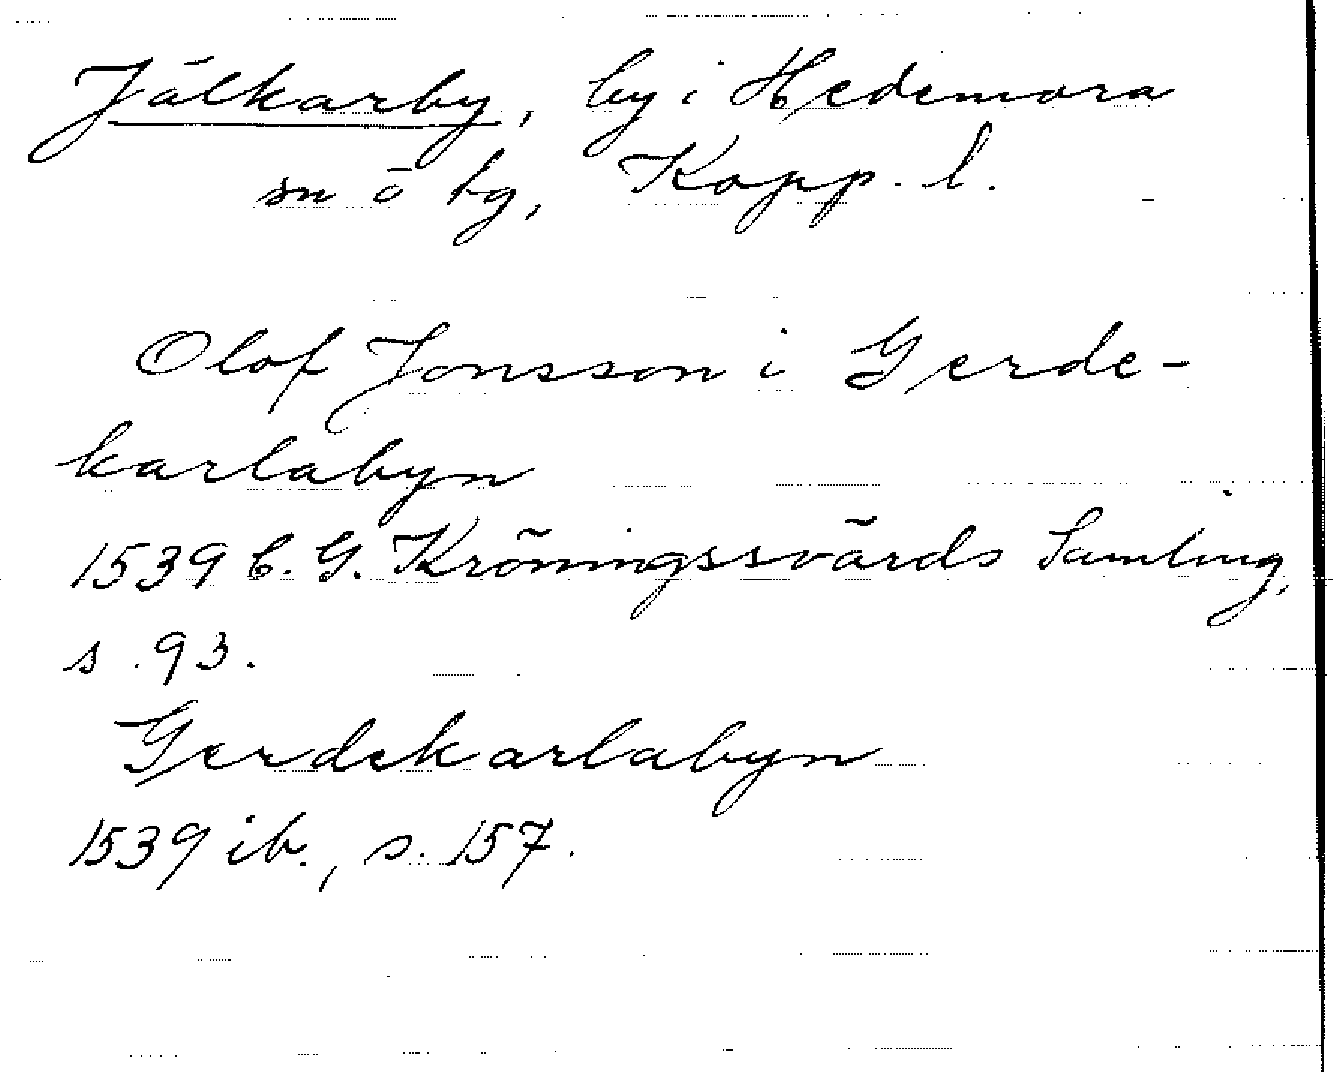 Jälkarby, by i Hedemora
sn o hg, Kopp. l.
Olof Jonsson i Gerde-
karlabyn
1539 C. G. Kröningssvärds Samling,
s. 93.
Gerdekarlabyn
1539 ib., s. 157.